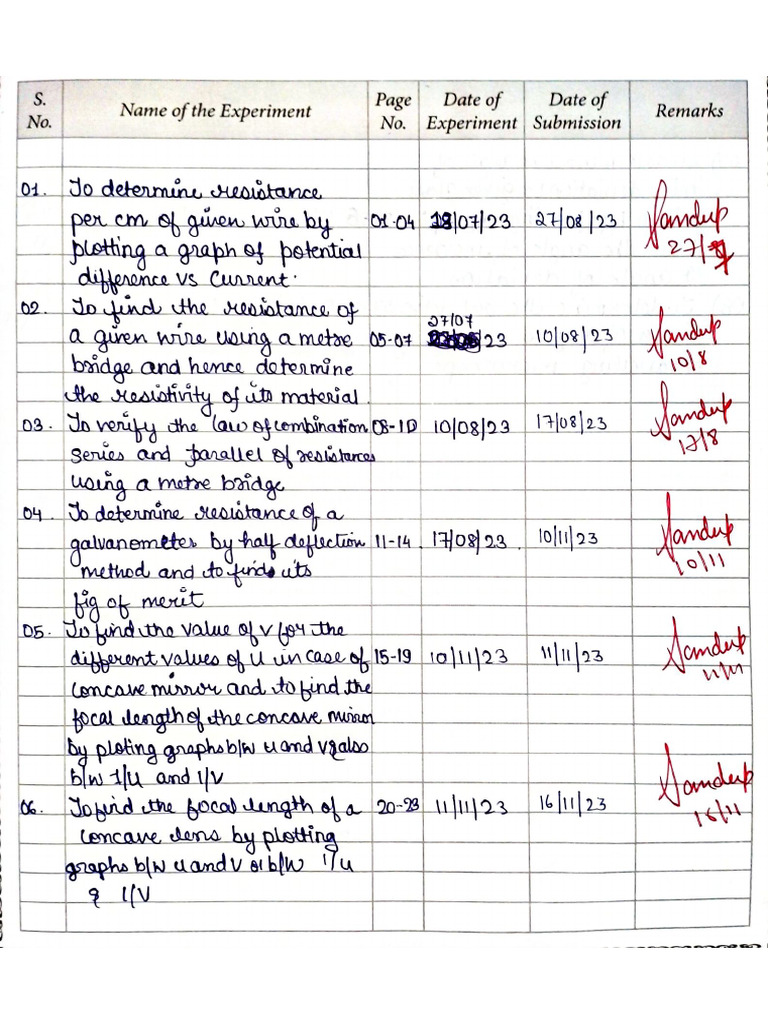 S. No. Name of the Experiment Page No. Date of Experiment Date of Submission Remarks
01. To determine resistance
per cm of given wire by 01-04 /07/23 27/08/23 Sandeep
plotting a graph of potential 27/
difference vs Current.
02. To find the resistance of
27/07
a given wire using a metre 05-07 /23 10/08/23 Sandeep
bridge and hence determine 10/8
the resistivity of its material.
03. To verify the law of combination 08-10 10/08/23 17/08/23 Sandeep
series and parallel of resistances 17/8
using a metre bridge
04. To determine resistance of a
galvanometer by half deflection 11-14. 17/08/23. 10/11/23 Sandeep
method and to find its 10/11
fig of merit
05. To find the value of v for the
different values of u in case of 15-19 10/11/23 11/11/23 Sandeep
concave mirror and to find the 11/11
focal length of the concave mirror
by ploting graphs b/w u and v & also
b/w 1/u and 1/v Sandeep
06. To find the focal length of a 20-23 11/11/23 16/11/23 16/11
concave lens by plotting
graphs b/w u and v or b/w 1/u
& 1/v